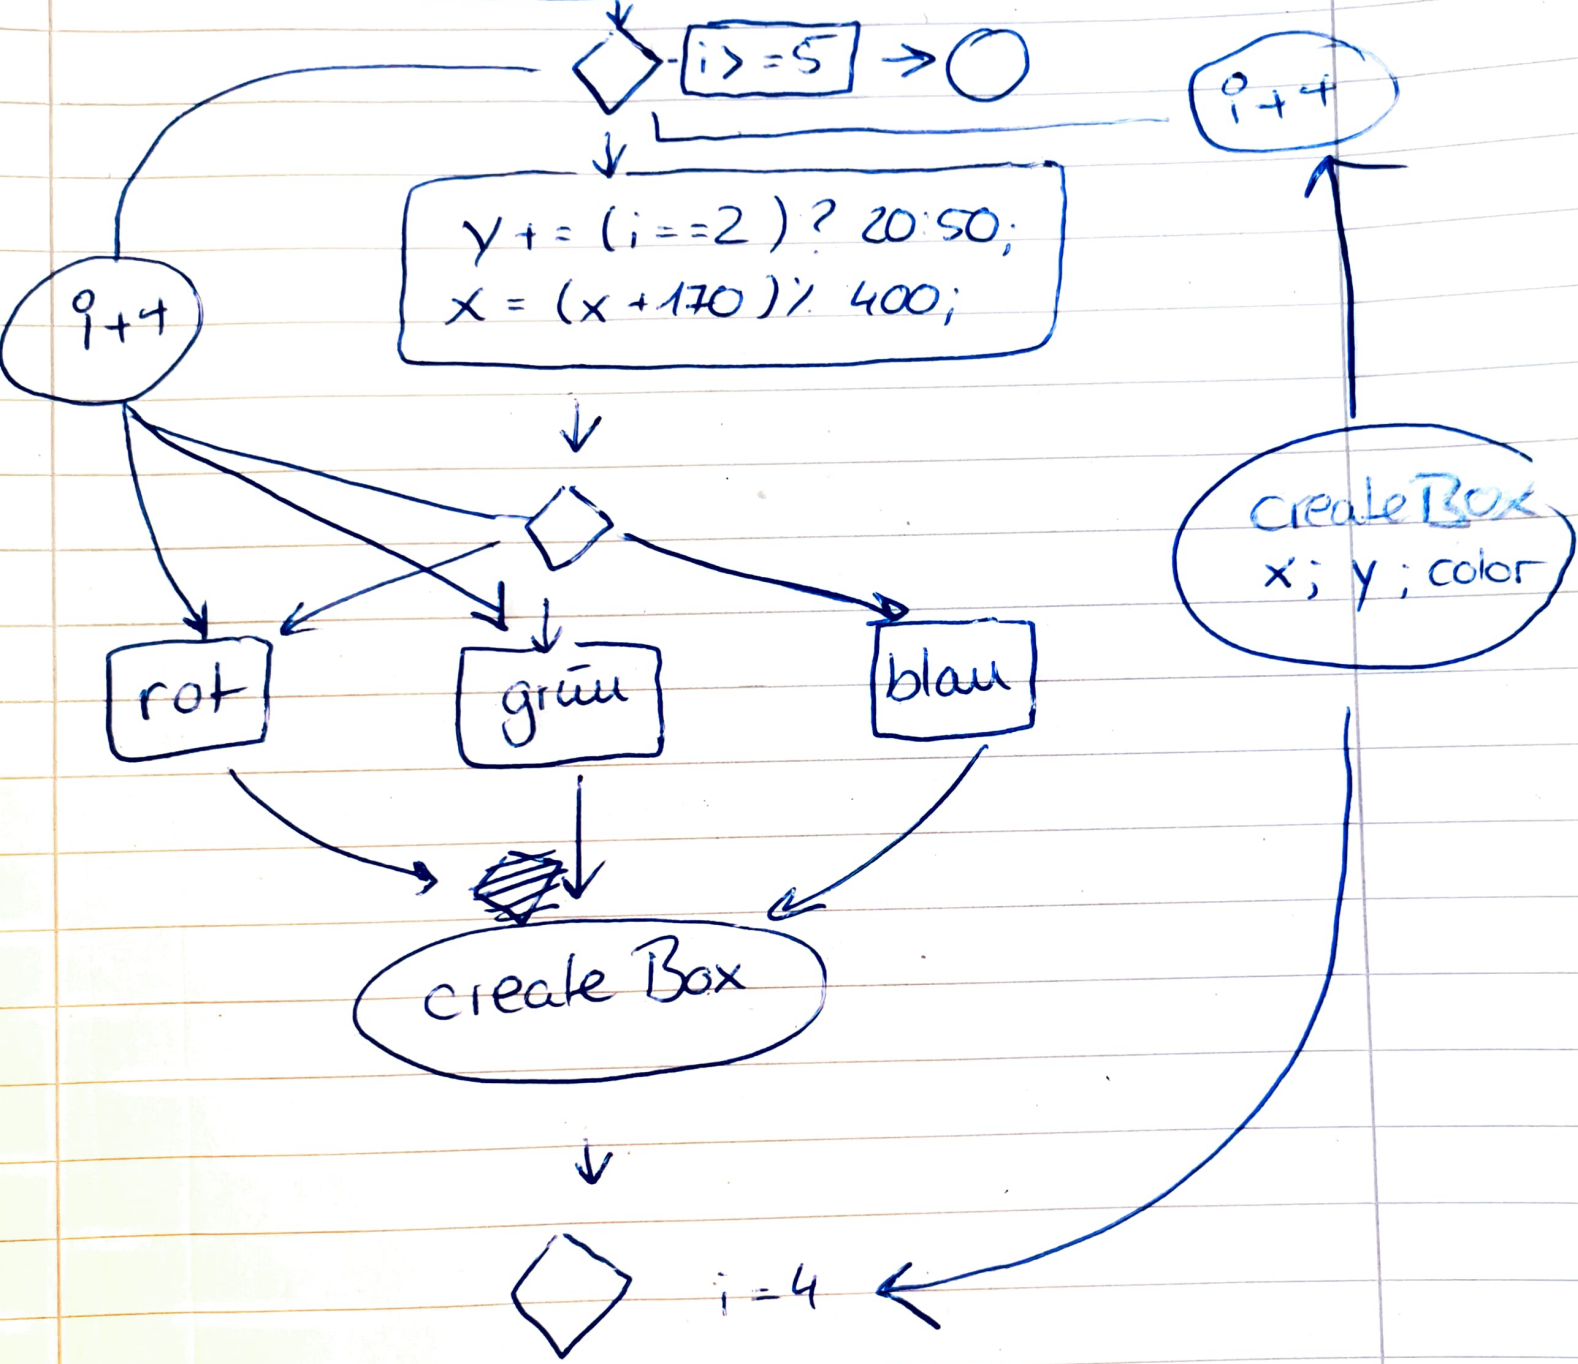 i>=5
i+4
y+=(i==2)? 20:50;
x=(x+170)% 400;
i+4
createBox
x; y; color
rot
grün
blau
create Box
i=4